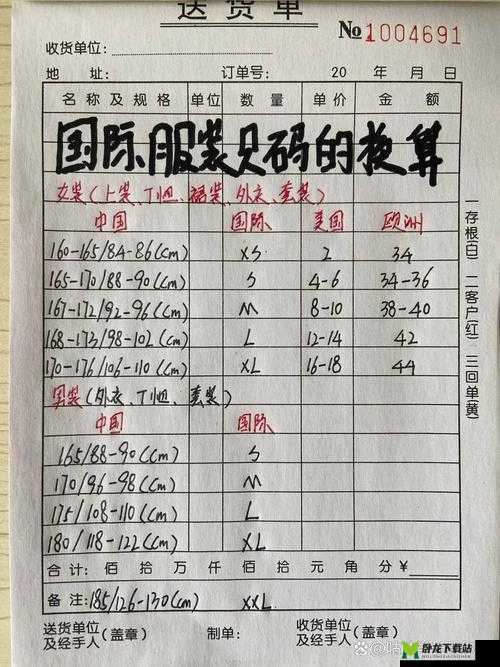 送货单
№1004691
收货单位：
地 址： 订单号： 20 年 月 日
名称及规格 单位 数量 单价 金额
国际服装尺码的换算
女装（上装、T恤、裙装、外衣、套装）
中国 国际 美国 欧洲
160-165/84-86(cm) XS 2 34
165-170/88-90(cm) S 4-6 34-36
167-172/92-96(cm) M 8-10 38-40
168-173/98-102(cm) L 12-14 42
170-176/106-110(cm) XL 16-18 44
男装（外衣、T恤、套装）
中国 国际
165/88-90(cm) S
170/96-98(cm) M
175/108-110(cm) L
180/118-122(cm) XL
合计： 佰 拾 万 仟 佰 拾 元 角 分 ¥
备注：185/126-130(cm) XXL
送货单位及经手人（盖章） 制单： 收货单位及经手人（盖章）
一存根(白) 二客户(红) 三回单(黄)
卧龙下载站